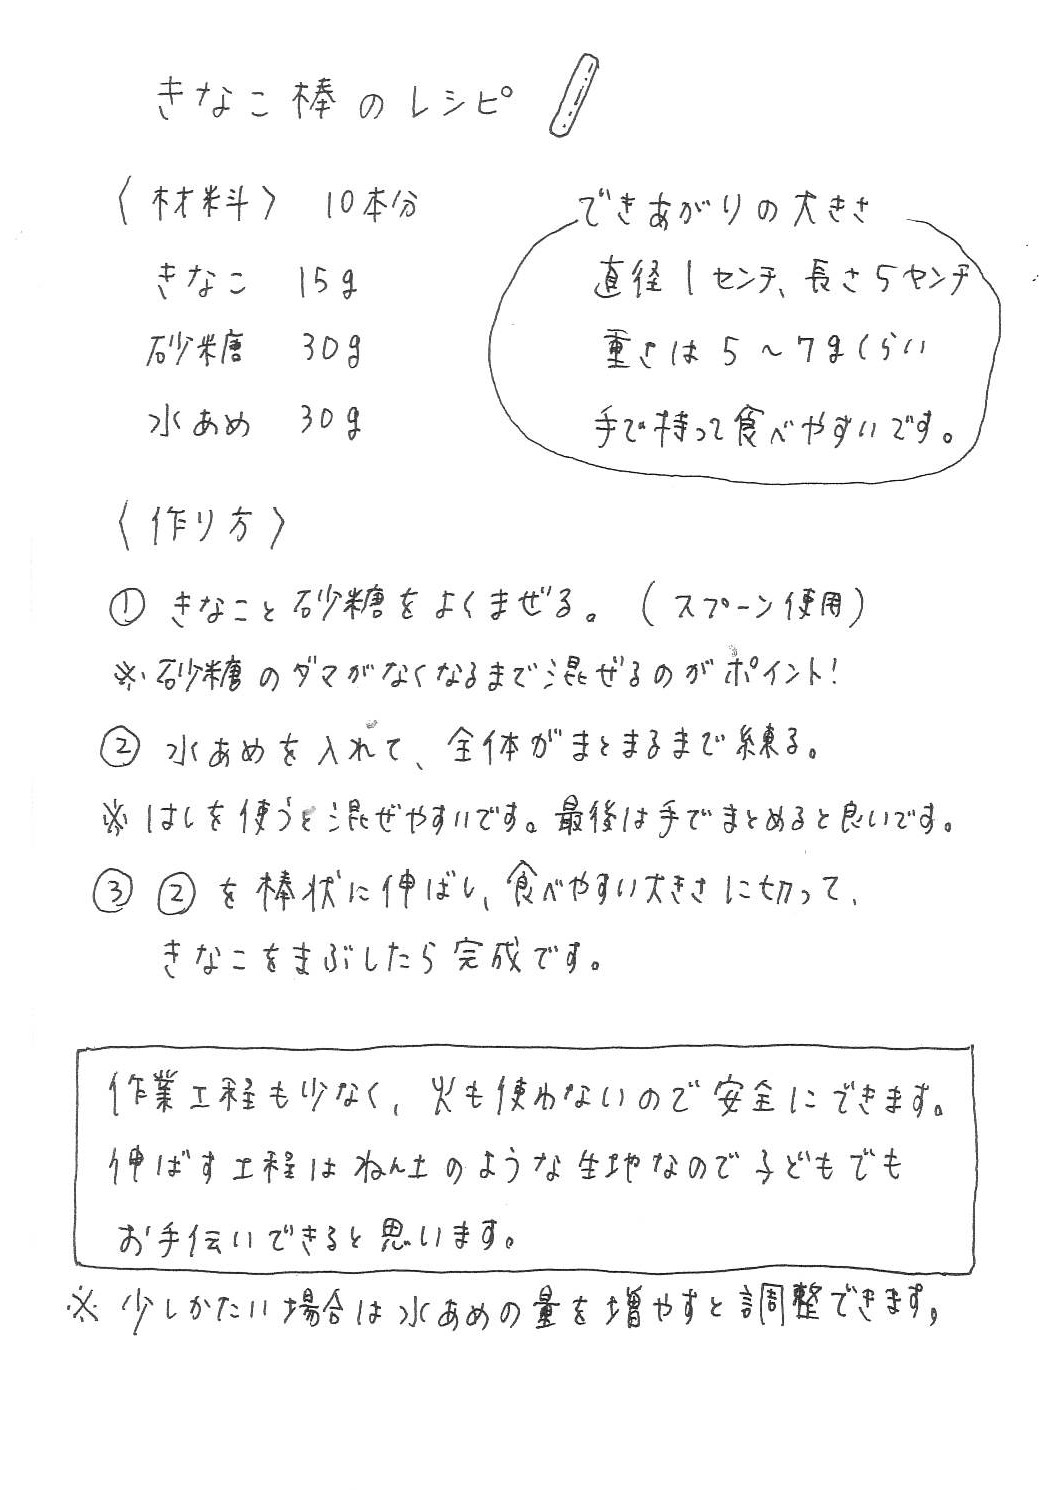 きなこ棒のレシピ
〈材料〉 10本分
きなこ 15g
砂糖 30g
水あめ 30g
できあがりの大きさ
直径1センチ、長さ5センチ
重さは5〜7gくらい
手で持って食べやすいです。
〈作り方〉
① きなこと砂糖をよくまぜる。(スプーン使用)
※砂糖のダマがなくなるまで混ぜるのがポイント!
② 水あめを入れて、全体がまとまるまで練る。
※はしを使うと混ぜやすいです。最後は手でまとめると良いです。
③ ②を棒状に伸ばし、食べやすい大きさに切って、
きなこをまぶしたら完成です。
作業工程も少なく、火も使わないので安全にできます。
伸ばす工程はねん土のような生地なので子どもでも
お手伝いできると思います。
※少しかたい場合は水あめの量を増やすと調整できます。